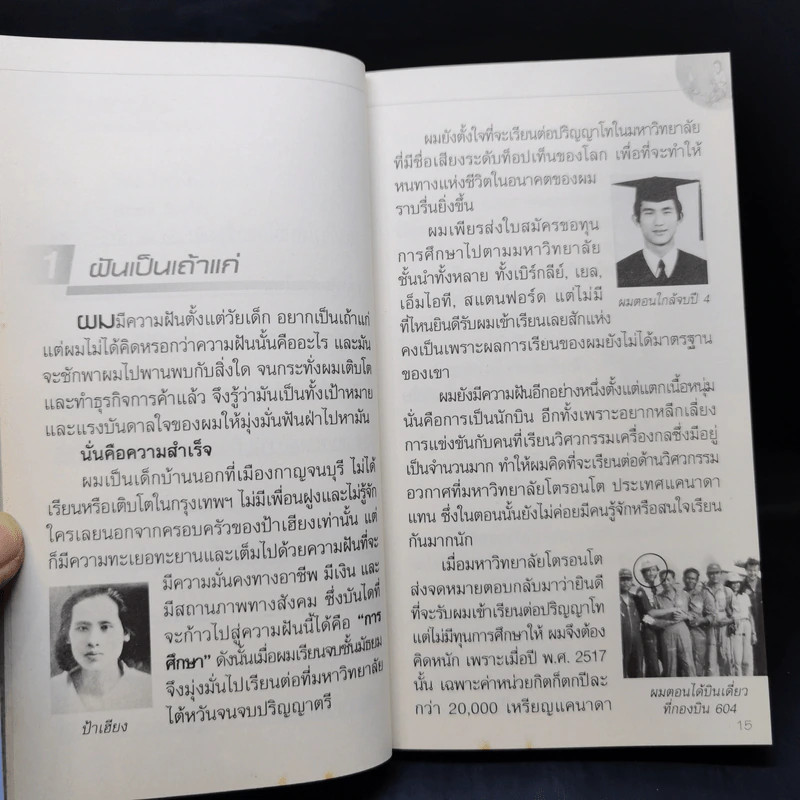 1 ฝันเป็นเถ้าแก่
ผมมีความฝันตั้งแต่วัยเด็ก อยากเป็นเถ้าแก่
แต่ผมไม่ได้คิดหรอกว่าความฝันนั้นคืออะไร และมัน
จะชักพาผมไปพานพบกับสิ่งใด จนกระทั่งผมเติบโต
และทำธุรกิจการค้าแล้ว จึงรู้ว่ามันเป็นทั้งเป้าหมาย
และแรงบันดาลใจของผมให้มุ่งมั่นฟันฝ่าไปหามัน
นั่นคือความสำเร็จ
ผมเป็นเด็กบ้านนอกที่เมืองกาญจนบุรี ไม่ได้
เรียนหรือเติบโตในกรุงเทพฯ ไม่มีเพื่อนฝูงและไม่รู้จัก
ใครเลยนอกจากครอบครัวของป้าเฮียงเท่านั้น แต่
ก็มีความทะเยอทะยานและเต็มไปด้วยความฝันที่จะ
มีความมั่นคงทางอาชีพ มีเงิน และ
มีสถานภาพทางสังคม ซึ่งบันไดที่
จะก้าวไปสู่ความฝันนี้ได้คือ “การ
ศึกษา” ดังนั้นเมื่อผมเรียนจบชั้นมัธยม
จึงมุ่งมั่นไปเรียนต่อที่มหาวิทยาลัย
ไต้หวันจนจบปริญญาตรี
ป้าเฮียง
ผมยังตั้งใจที่จะเรียนต่อปริญญาโทในมหาวิทยาลัย
ที่มีชื่อเสียงระดับท็อปเท็นของโลก เพื่อที่จะทำให้
หนทางแห่งชีวิตในอนาคตของผม
ราบรื่นยิ่งขึ้น
ผมเพียรส่งใบสมัครขอทุน
การศึกษาไปตามมหาวิทยาลัย
ชั้นนำทั้งหลาย ทั้งเบิร์กลีย์, เยล,
เอ็มไอที, สแตนฟอร์ด แต่ไม่มี
ที่ไหนยินดีรับผมเข้าเรียนเลยสักแห่ง
คงเป็นเพราะผลการเรียนของผมยังไม่ได้มาตรฐาน
ของเขา
ผมตอนใกล้จบปี 4
ผมยังมีความฝันอีกอย่างหนึ่งตั้งแต่แตกเนื้อหนุ่ม
นั่นคือการเป็นนักบิน อีกทั้งเพราะอยากหลีกเลี่ยง
การแข่งขันกับคนที่เรียนวิศวกรรมเครื่องกลซึ่งมีอยู่
เป็นจำนวนมาก ทำให้ผมคิดที่จะเรียนต่อด้านวิศวกรรม
อวกาศที่มหาวิทยาลัยโตรอนโต ประเทศแคนาดา
แทน ซึ่งในตอนนั้นยังไม่ค่อยมีคนรู้จักหรือสนใจเรียน
กันมากนัก
เมื่อมหาวิทยาลัยโตรอนโต
ส่งจดหมายตอบกลับมาว่ายินดี
ที่จะรับผมเข้าเรียนต่อปริญญาโท
แต่ไม่มีทุนการศึกษาให้ ผมจึงต้อง
คิดหนัก เพราะเมื่อปี พ.ศ. 2517
นั้น เฉพาะค่าหน่วยกิตก็ตกปีละ
กว่า 20,000 เหรียญแคนาดา
ผมตอนได้บินเดี่ยว
ที่กองบิน 604
15